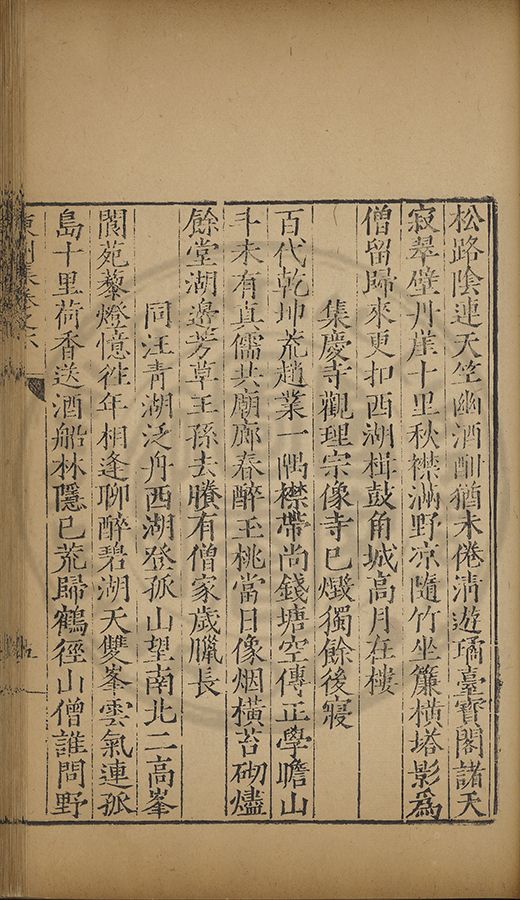 松路陰連天竺幽酒酣猶未倦清遊璚臺寳閣諸天
寂翠壁丹崖十里秋襟滿野凉隨竹坐簾横塔影為
僧留歸來更扣西湖楫鼓角城高月在樓
集慶寺觀理宗像寺已燬獨餘後寢
百代乾坤荒趙業一隅襟帶尚錢塘空傳正學瞻山
斗未有真儒共廟廊春醉玉桃當日像烟横苔砌燼
餘堂湖邊芳草王孫去賸有僧家歲臘長
同汪青湖泛舟西湖登孤山望南北二高峯
閬苑藜燈憶徃年相逢聊醉碧湖天雙峯雲氣連孤
島十里荷香送酒船林隱已荒歸鶴徑山僧誰問野